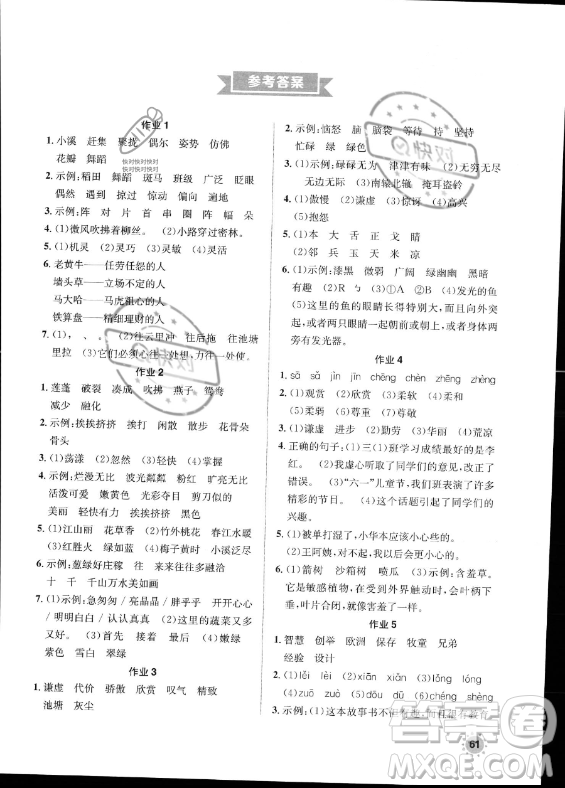 参考答案
作业 1
1. 小溪 赶集 聚拢 偶尔 姿势 仿佛
花瓣 舞蹈
2. 示例:稻田 舞蹈 斑马 班级 广泛 眨眼
偶然 这届 掠过 惊动 偏向 遍地
3. 示例:阵 对 片 首 串 圈 阵 幅 朵
4. (1)微风吹拂着柳丝。 (2)小路穿过密林。
5. (1)机灵 (2)灵巧 (3)灵敏 (4)灵活
6. 老黄牛——任劳任怨的人
墙头草——立场不定的人
马大哈——马虎粗心的人
铁算盘——精细理财的人
7. (1), 、 、 。 (2)往云里冲 往后拖 往池塘
里拉 (3)它们必须心往一处想,力往一处使。
作业 2
1. 莲蓬 破裂 凑成 吹拂 燕子 鸳鸯
减少 融化
2. 示例:挨挨挤挤 挨打 闲散 散步 花骨朵
骨头
3. (1)荡漾 (2)忽然 (3)轻快 (4)掌握
4. 示例:烂漫无比 波光粼粼 粉红 旷亮无比
活泼可爱 嫩黄色 光彩夺目 剪刀似的
美丽 轻快有力 挨挨挤挤 黑色
5. (1)江山丽 花草香 (2)竹外桃花 春江水暖
(3)红胜火 绿如蓝 (4)梅子黄时 小溪泛尽
6. 示例:葱绿好庄稼 往来 来来往往多融洽
十 千 千山万水美如画
7. (1)示例:急匆匆/亮晶晶/胖乎乎 开开心心
/明明白白/认认真真 (2)市里的蔬菜又多
又好。 (3)首先 接着 最后 (4)嫩绿
紫色 雪白 翠绿
作业 3
1. 谦虚 代价 骄傲 欣赏 叹气 精致
池塘 灰尘
2. 示例:恼怒 脑 脑袋 等待 持 坚持
忙碌 绿 绿色
3. (1)示例:碌碌无为 津津有味 (2)无穷无尽
无边无际 (3)南辕北辙 掩耳盗铃
4. (1)傲慢 (2)谦虚 (3)惊讶 (4)高兴
(5)抱怨
5. (1)本 大 舌 正 戈 睛
(2)邻 兵 玉 天 来 凉
6. (1)示例:漆黑 微弱 广阔 绿幽幽 黑暗
有趣 (2)R (3)① ②B (4)发光的鱼
(5)这里的鱼的眼睛长得特别大,而且向外突
起,或者两只眼睛一起朝前或朝上,或者身旁
有发光器。
作业 4
1. sā sǎ jìn jīn chēng chèn zhēng zhèng
2. (1)观赏 (2)欣赏 (3)柔和 (4)柔软
(5)柔弱 (6)尊重 (7)尊敬
3. (1)谦虚 虚心 (2)勤劳 (3)华丽 (4)荒凉
4. 正确的句子:(1)三(1)班学习成绩最好的是李
红。 (2)我虚心听取了同学们的意见,改正了
缺点。 (3)“六一”儿童节,我们观看了许多
精彩的节目。 (4)这个话题引起了同学们的
兴趣。
5. (1)被单打湿了,小华本应该小心些的。
(2)王阿姨,对不起,我以后会小心些的。
6. (1)箭树 沙箱树 喷瓜 (2)示例:含羞草。
它是敏感植物,在受到外界触动时,它的叶柄下垂,
叶片合闭,就是因为“害羞”。
作业 5
1. 智慧 创举 欧洲 保存 牧童 兄弟
经验 设计
2. (1)lěi lèi (2)xiān xiān (3)jiǎng jiàng
(4)zuō zuò (5)dū dōu (6)sì shì
3. 示例:(1)这本故事书不但有趣,而且很有教育
61